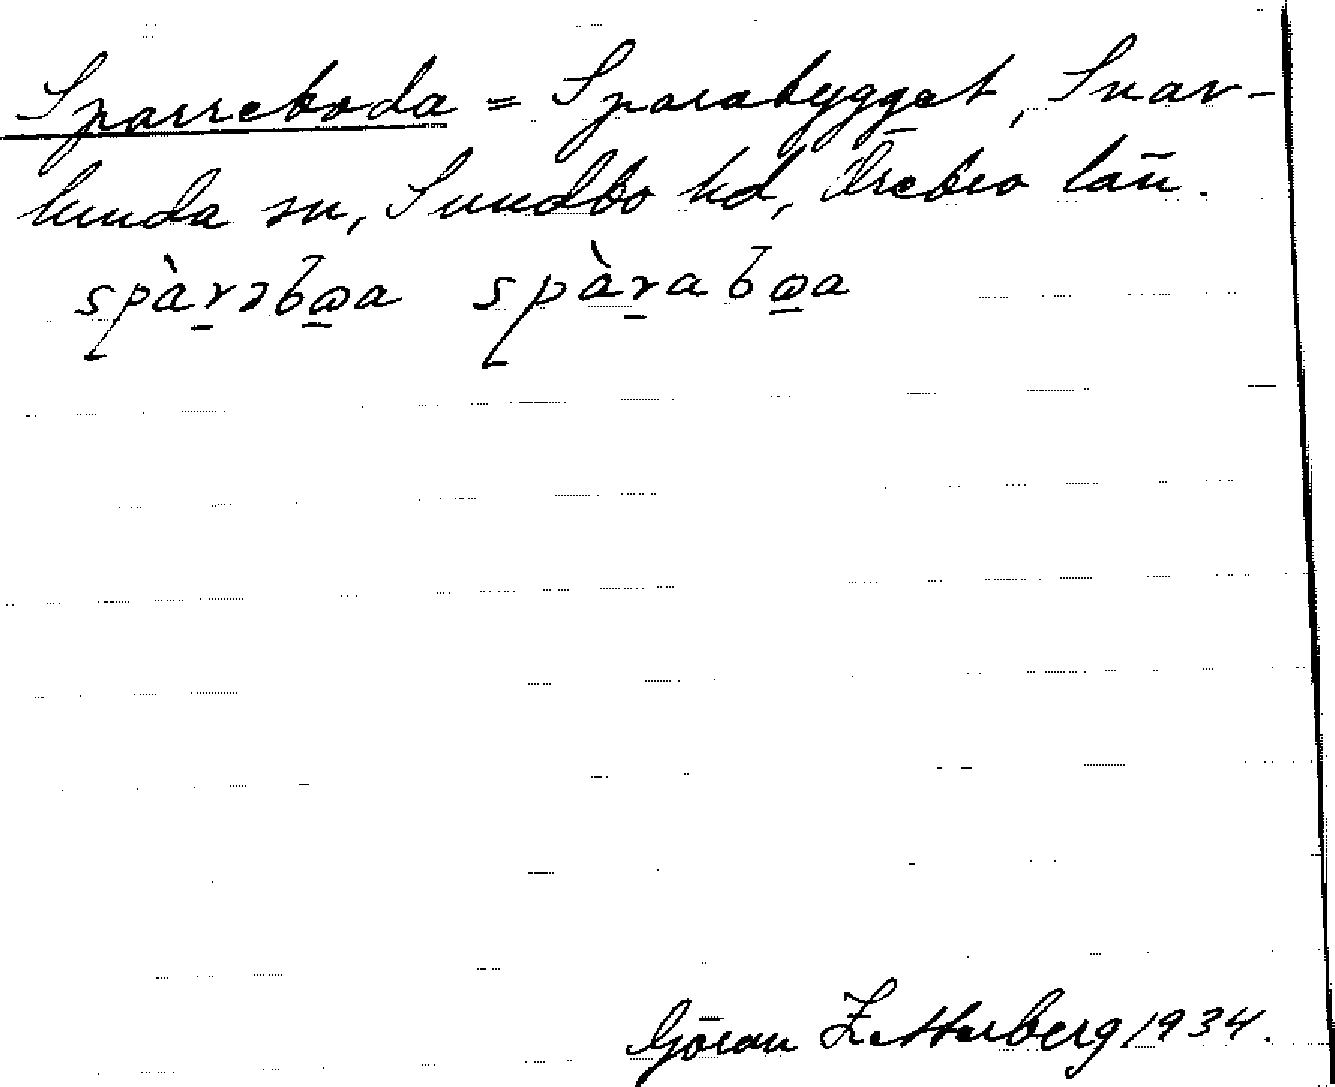 Sparreboda = Sparabygget, Snav-
lunda sn, Sundbo hd, Örebro län.
spàrəbɷa spàrabɷa
Göran Zetterberg 1934.